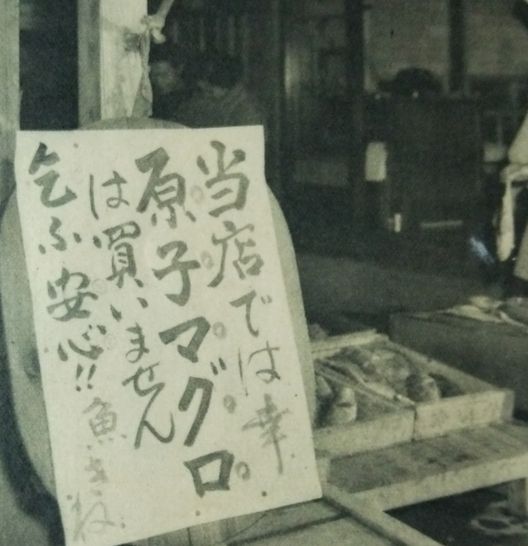 当店では幸
原子マグロ
は買いません
乞ふ安心!!
魚きね